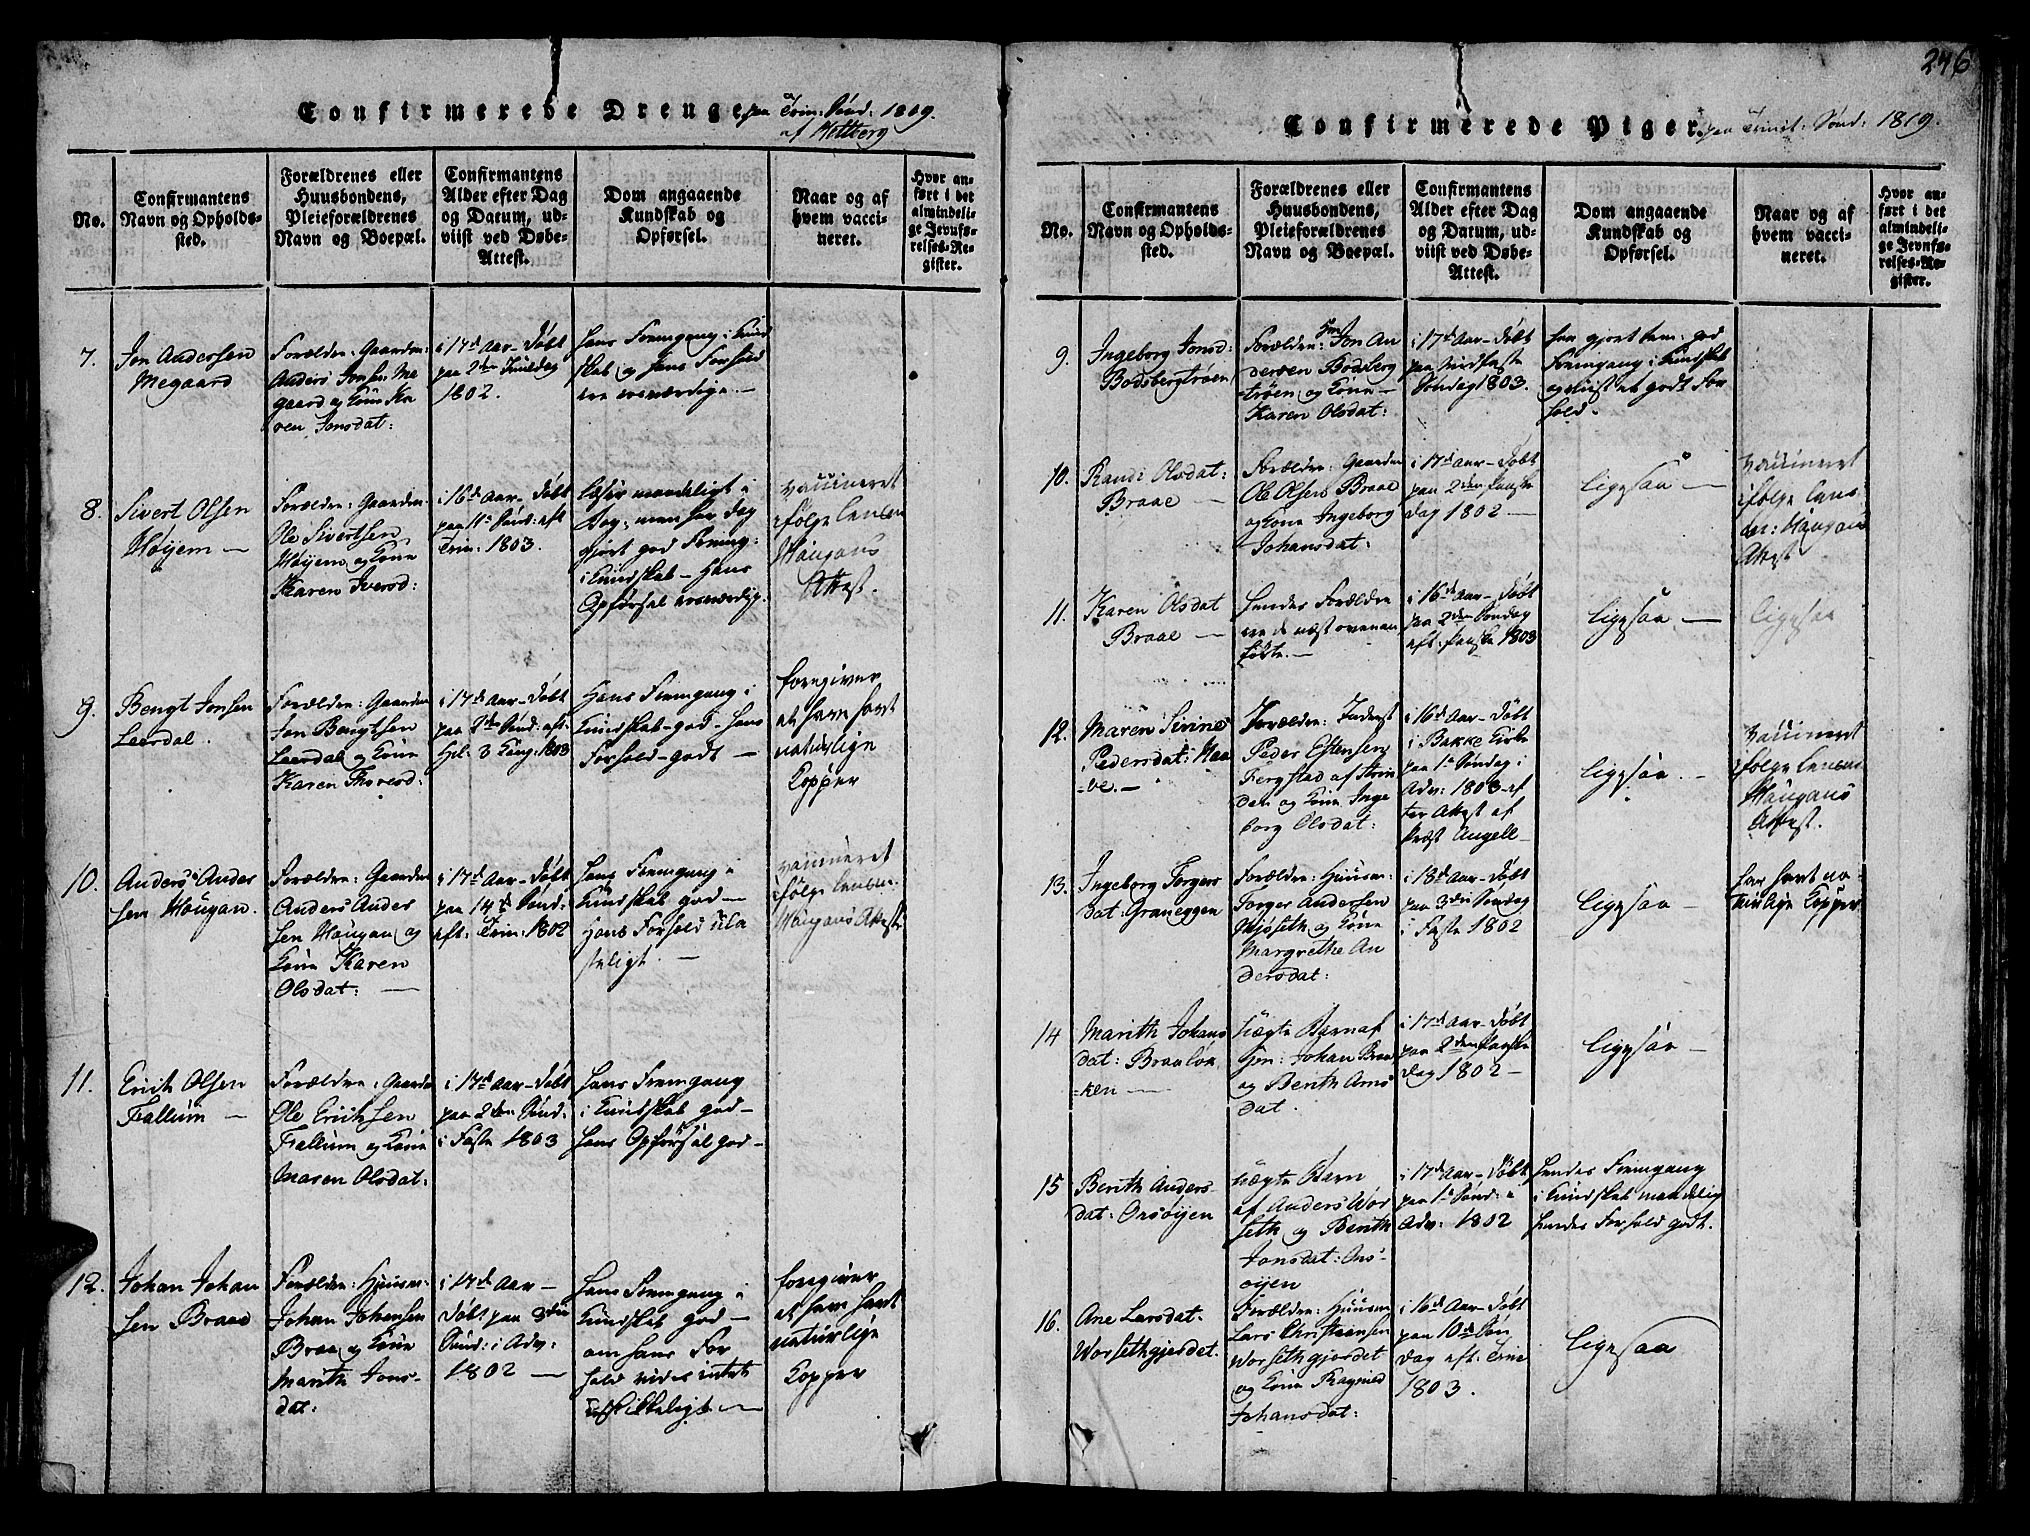 246
Confirmerede Drenge paa Trin: Sönd: 1819.
af Meltberg
No.
Confirmantens
Navn og Opholds-
sted.
Forældrenes eller
Huusbondens,
Pleieforældrenes
Navn og Boepæl.
Confirmantens
Alder efter Dag
og Datum, ud-
viist ved Døbe-
Attest.
Dom angaaende
Kundskab og
Opførsel.
Naar og af
hvem vacci-
neret.
Hvor an-
ført i det
almindeli-
ge Jevnfø-
relses-Re-
gister.
7.
Jon Andersen
Megaard
Forældre: Gaardm:
Anders Jonsen Me
gaard og Kone Ka
ren Jonsdat:
i 17d Aar - Döbt
paa 2den Juuldag
1802.
Hans Fremgang i Kund
skab og hans Forhold
ere roesværdige. -
8.
Sivert Olsen
Höyem -
Forældre: Gaardm:
Ole Sivertsen
Höyem og Kone
Karen Iversd:
i 16d Aar - Döbt
paa 11te Sönd: eft
Trin: 1803.
læser maadeligt i
Bog, men har dog
gjort god Fremg:
i Kundskab - Hans
Opförsel roesværdig.
vaccineret
ifölge
Hougans
Attest.
9.
Bengt Jonsen
Leerdal.
Forældre: Gaardm
Jon Bengtsen
Leerdal og Kone
Karen Thoresd:
i 17d Aar - Döbt
paa 2den Sönd: eft:
Hel. 3 Kong: 1803
Hans Fremgang i
Kundskab - god - Hans
Forhold - godt -
foregiver
at have havt
naturlige
Kopper
10.
Anders Ander
sen Hougan.
Forældre: Gaardm
Anders Ander
sen Hougan og
Kone Karen
Olsdat: -
i 17d Aar - Döbt
paa 14d Sönd:
eft: Trin: 1802
Hans Fremgang i
Kundskab god -
Hans Forhold ula
steligt. -
vaccineret
ifölge
Hougans Attest
11.
Erich Olsen
Fallum -
Forældre: Gaardm
Ole Erichsen
Fallum og Kone
Maren Olsdat:
i 17d Aar - Döbt
paa 2den Sönd:
i Faste 1803
Hans Fremgang
i Kundskab god -
Hans Opförsel god -
12.
Johan Johan
sen Braae
Forældre: Huusm:
Johan Johansen
Braa og Kone
Marith Jons-
dat:
i 17d Aar -
Döbt paa 3die
Sönd: i Adv:
1802 -
Hans Fremgang i
Kundskab god -
om hans For
hold vides intet
uskikkeligt -
foregiver
at have havt
naturlige
Kopper
Confirmerede Piger paa Trinit: Sönd: 1819.
No.
Confirmantens
Navn og Opholds-
sted.
Forældrenes eller
Huusbondens,
Pleieforældrenes
Navn og Boepæl.
Confirmantens
Alder efter Dag
og Datum, ud-
viist ved Døbe-
Attest.
Dom angaaende
Kundskab og
Opførsel.
Naar og af
hvem vacci-
neret.
Hvor an-
ført i det
almindeli-
ge Jevnfø-
relses-Re-
gister.
9.
Ingeborg Jonsd:
Bodsbergtröen
Forældre: Hm Jon An
dersen Bodsberg
tröen og Kone -
Karen Olsdat:
i 17d Aar - Döbt
paa Midfaste
Söndag 1803.
har gjort tem: god
Fremgang i Kundskab
og viist et godt For
hold.
10.
Randi Olsdat:
Braae -
Forældre: Gaardm
Ole Olsen Braae
og Kone Ingeborg
Johansdat:
i 17d Aar - Döbt
paa 2den Paaske
Dag 1802 -
Ligesaa -
vaccineret
ifölge
Hougans
Attest
11.
Karen Olsdat
Braae -
Hendes Forældre
ere de næst ovenan
förte. -
i 16de Aar - Döbt
paa 2den Söndag
eft: Paaske 1803
Ligesaa -
Ligesaa
12.
Maren Sirine
Pedersdat: Haa
-ve. -
Forældre: Inderst
Peder Estensen
Bergstad af Strin
den og Kone Inge
borg Olsdat:
i 16d Aar - Döbt
i Bakke Kirke
paa 1te Söndag i
Adv: 1803 - ef
ter Attest af
Præst Angell -
Ligesaa. -
vaccineret
ifölge
Hougans
Attest.
13.
Ingeborg Torgers
dat: Graneggen
Forældre: Huusm:
Torger Andersen
Mjöseth og Kone
Margrethe An
dersdat:
i 18d Aar - Döbt
paa 3die Söndag
i Faste 1802
Ligesaa -
har havt na-
turlige Kopper
14
Marith Johans
dat: Braalök
-ken -
Uægte Barn af
Gm: Johan Braa
og Berith Arns
dat.
i 17d Aar - Döbt
paa 2den Paaske
dag 1802 -
Ligesaa -
15
Berith Anders-
dat: Onsöyen
Uægte Barn
af Anders Wor
seth og Berith
Jonsdat: Ons-
öyen
i 17de Aar - Döbt
paa 1te Sönd: i
Adv: 1802
Hendes Fremgang
i Kundskab maadelig
Hendes Forhold godt.
16.
Ane Larsdat.
Worsethgjerdet.
Forældre: Huusm
Lars Christiansen
Worsethgjerdet
og Kone Ragnild
Johansdat:
i 16d Aar - Döbt
paa 10de Sön
dag eft: Trin
1803.
Ligesaa